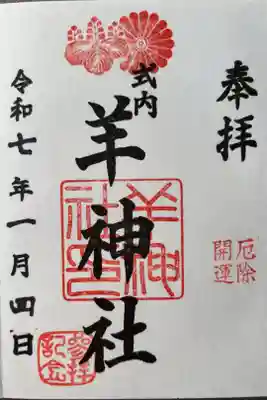 奉拝
厄除
開運
式内
羊神社
羊神
社印
参拝
記念
令和七年一月四日